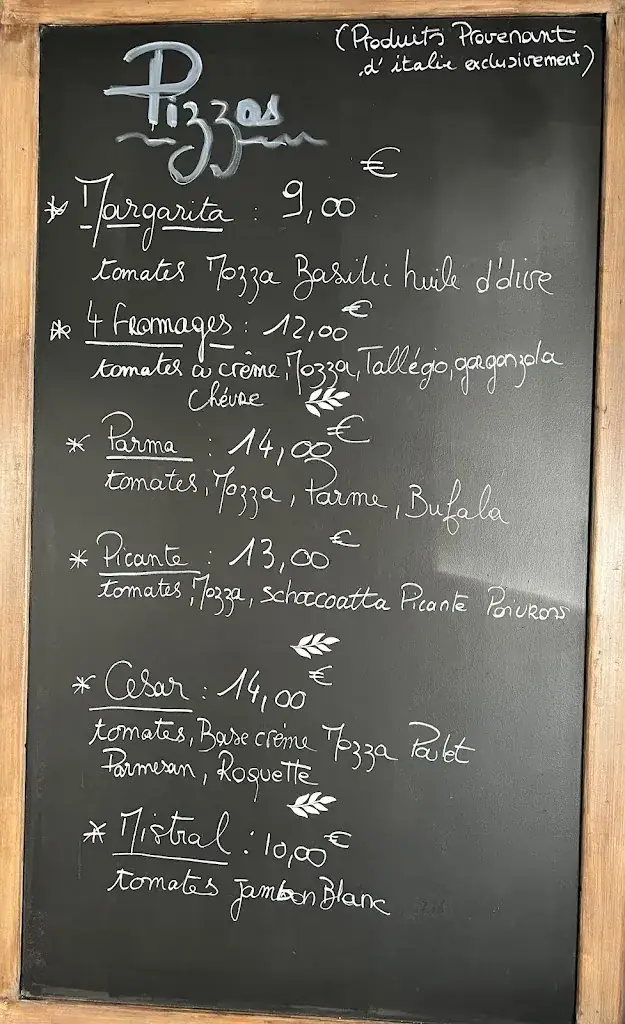 (Produits Provenant
d'italie exclusivement)
Pizzas
* Margarita : 9,00 €
tomates Mozza Basilic huile d'olive
* 4 fromages : 12,00 €
tomates à crème, Mozza, Tallégio, gorgonzola
Chévre
* Parma : 14,00 €
tomates, Mozza, Parme, Bufala
* Picante : 13,00 €
tomates, Mozza, schoccoatta Picante Poivrons
* César : 14,00 €
tomates, Base crème Mozza Poulet
Parmesan, Roquette
* Mistral : 10,00 €
tomates jambon Blanc